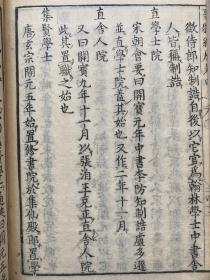 徵侍郎知制誥自後以它官爲翰林學士中書舍
人皆稱制誥
直學士院
宋朝會要曰開寶元年中書李昉知制誥盧多遜
並直學士院蓋其始也又作二年十一月
直舍人院
又曰開寶九年十一月以張洎王克正直舍人院
此其置職之始也
集賢學士
唐玄宗開元五年始置修書院於集仙殿即置學